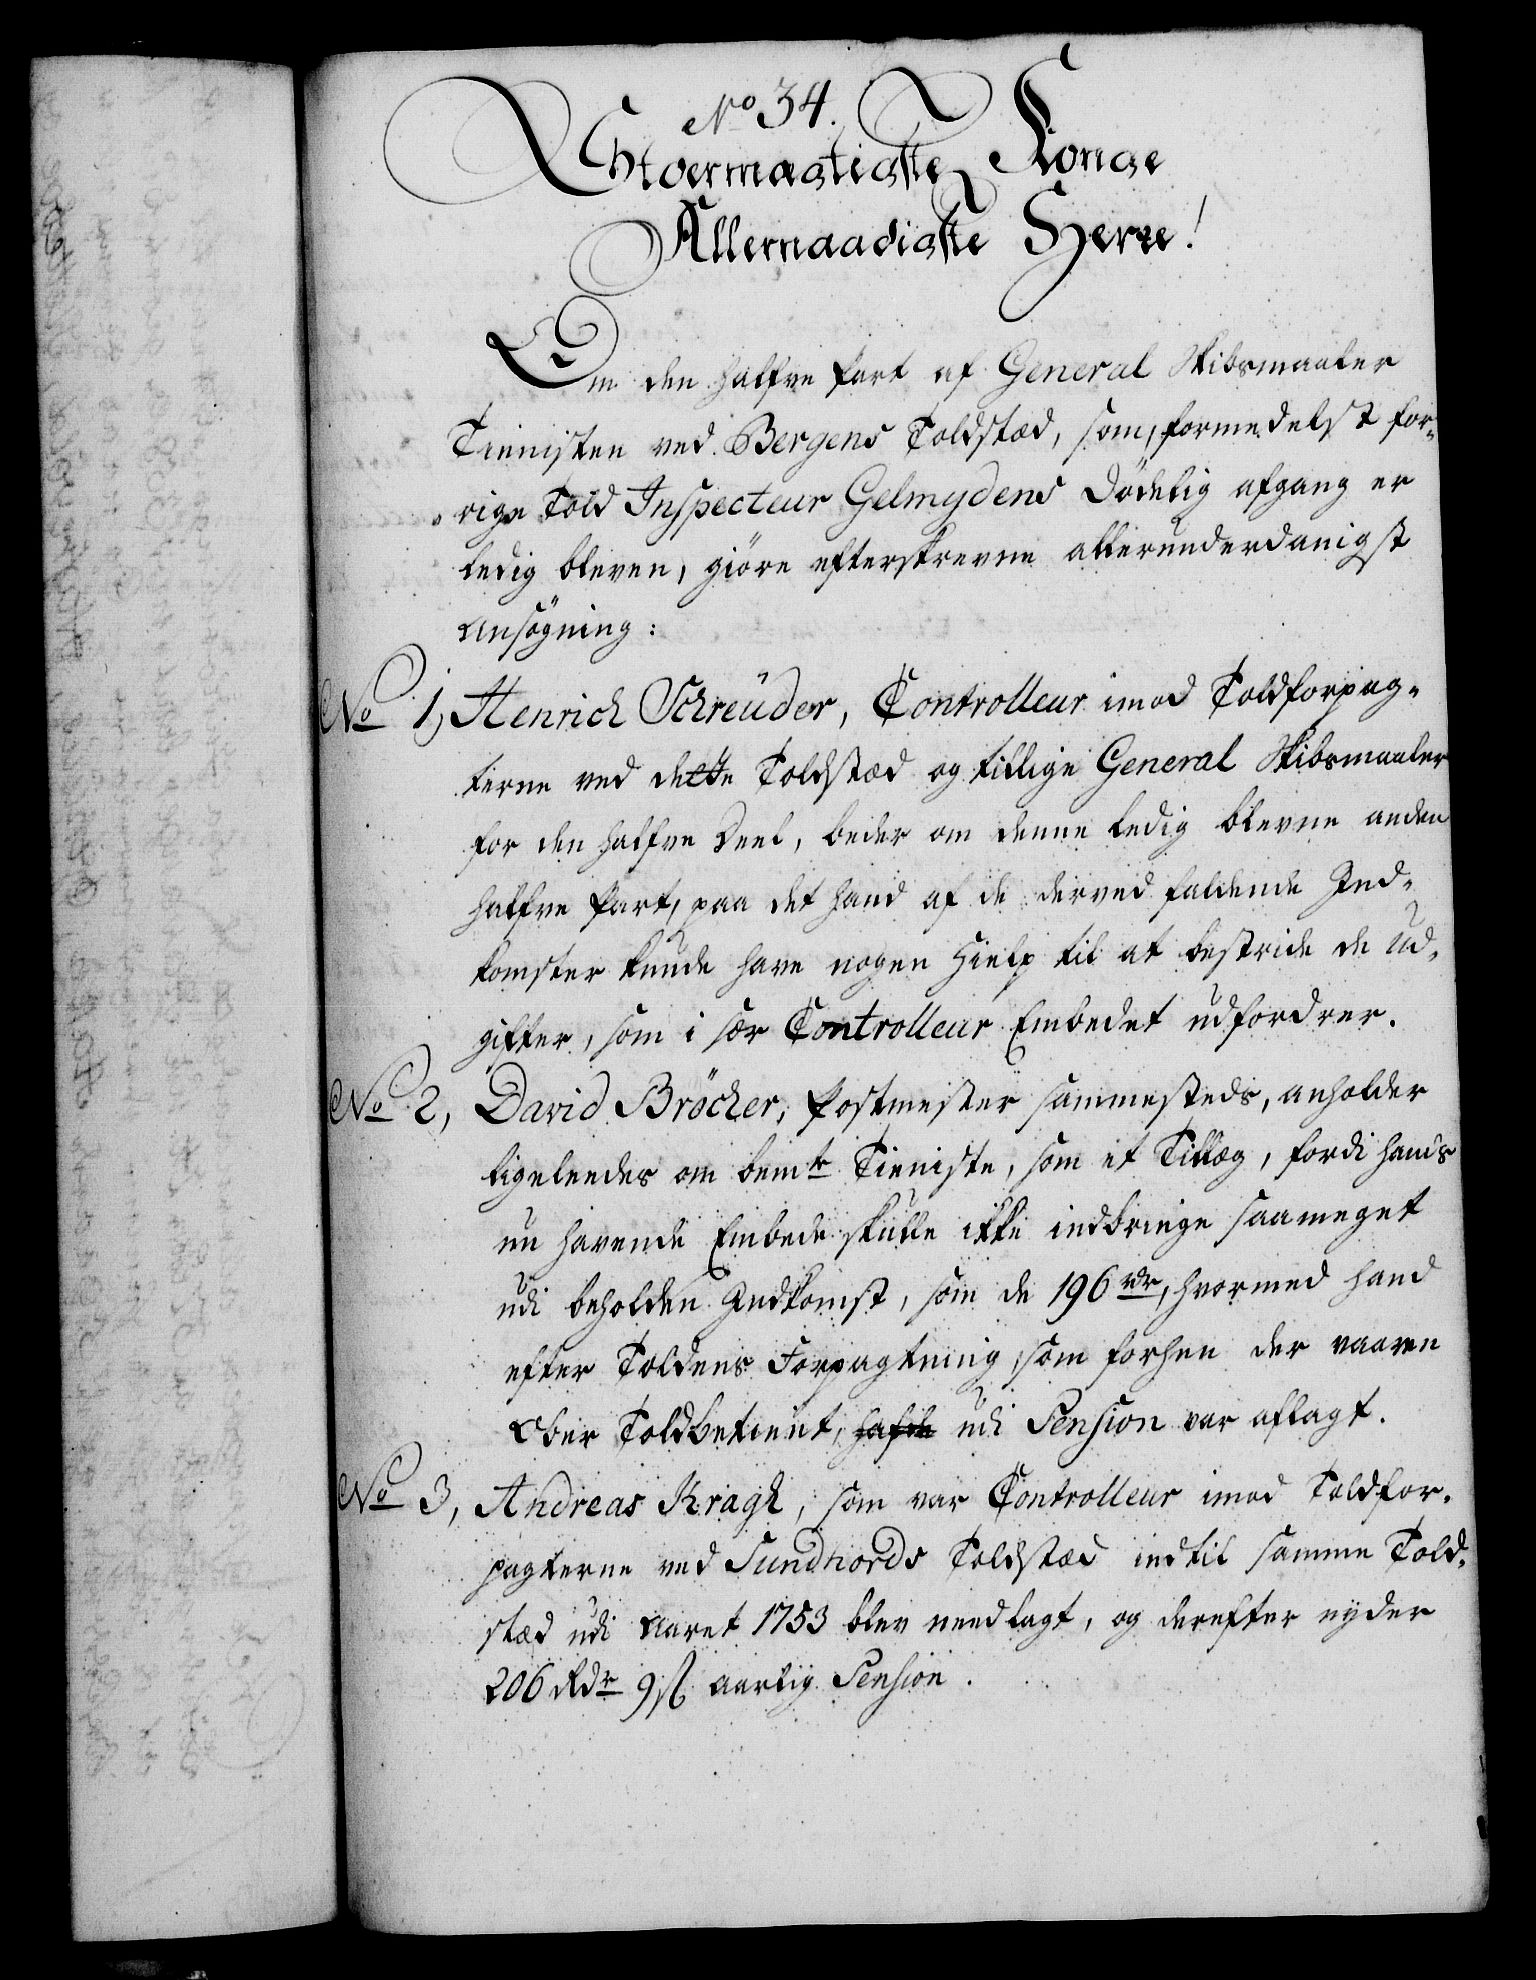 No 34.
Stormægtigste Konge
Allernaadigste Herre!
Om den halfve Part af General Skibsmaaler
Tienisten ved Bergens Toldstæd, som, formedelst for-
rige Told Inspecteur Gelmydens dödelig afgang er
ledig bleven, giöre efterskrevne allerunderdanigst
Ansögning:
No 1, Henrich Schreüder, Controlleur imod Toldforpag-
terne ved dette Toldstæd og tillige General Skibsmaaler
for den halfve Deel, beder om denne ledig blevne anden
halfve Part, paa det hand af de derved faldende Ind-
komster kunde have nogen Hielp til at bestride de Ud-
gifter, som i sær Controlleur Embedet udfordrer.
No 2, David Bröcher, Postmester sammesteds, anholder
ligeleedes om bemte Tieniste, som et Tillæg, fordi hans
nu havende Embede skulle ikke indbringe saameget
udi beholden Indkomst, som de 196 rdr, hvormed hand
efter Toldens Forpagtning, som forhen der vaaren
Ober Toldbetient, hafde udi Pension var aflagt.
No 3, Andreas Kragh, som var Controlleur imod Toldfor-
pagterne ved Sundhords Toldstæd indtil samme Told-
stæd udi Aaret 1753 blev needlagt, og derefter nyder
206 Rdr 9 ß aarlig Pension.